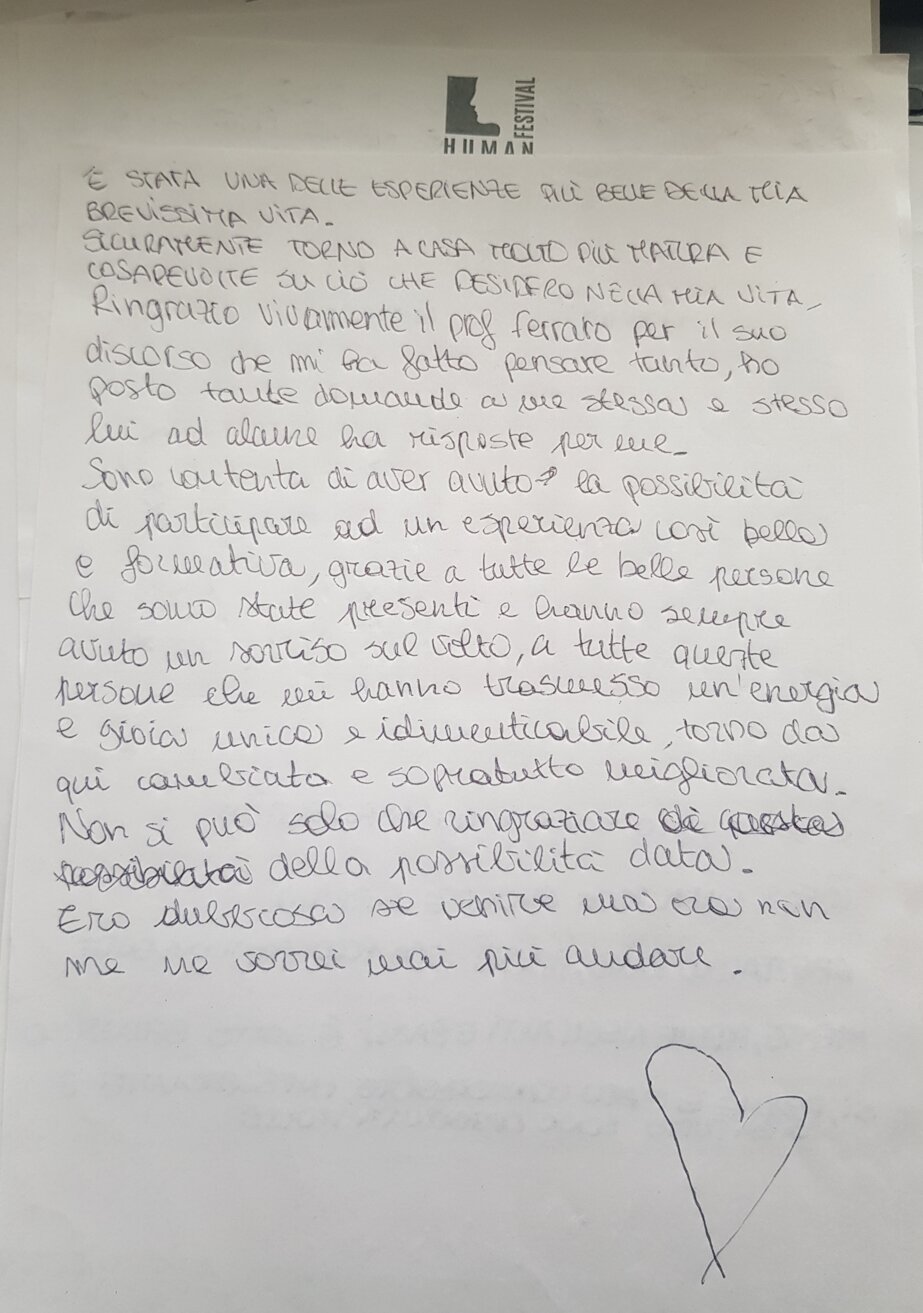 HUMAN FESTIVAL
È STATA UNA DELLE ESPERIENZE PIÙ BELLE DELLA MIA
BREVISSIMA VITA.
SICURAMENTE TORNO A CASA MOLTO PIÙ MATURA E
COSAPEVOLTE SU CIÒ CHE DESIDERO NELLA MIA VITA.
Ringrazio vivamente il prof ferraro per il suo
discorso che mi ha fatto pensare tanto, ho
posto tante domande a me stessa e stesso
lui ad alcune ha risposte per me.
Sono contenta di aver avuto la possibilità
di participare ad un esperienza così bella
e formativa, grazie a tutte le belle persone
che sono state presenti e hanno sempre
avuto un sorriso sul volto, a tutte queste
persone che mi hanno trasmesso un'energia
e gioia unica e idimenticabile, torno da
qui cambiata e sopratutto migliorata.
Non si può solo che ringraziare di questa
possibilità della possibilità data.
Ero dubbiosa se venire ma ora non
me ne vorrei mai più andare.